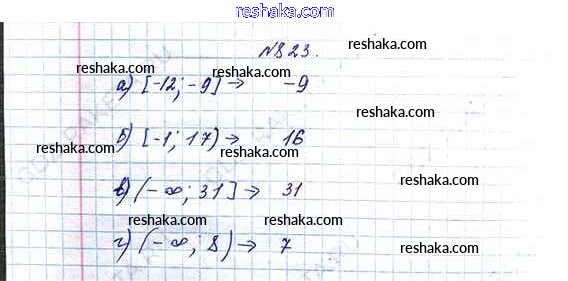 reshaka.com
№823.
reshaka.com
reshaka.com reshaka.com
а) [-12; -9] → -9
reshaka.com
б) [-1; 17) → 16
reshaka.com reshaka.com
в) (-∞; 31] → 31
reshaka.com reshaka.com
г) (-∞; 8) → 7
reshaka.com